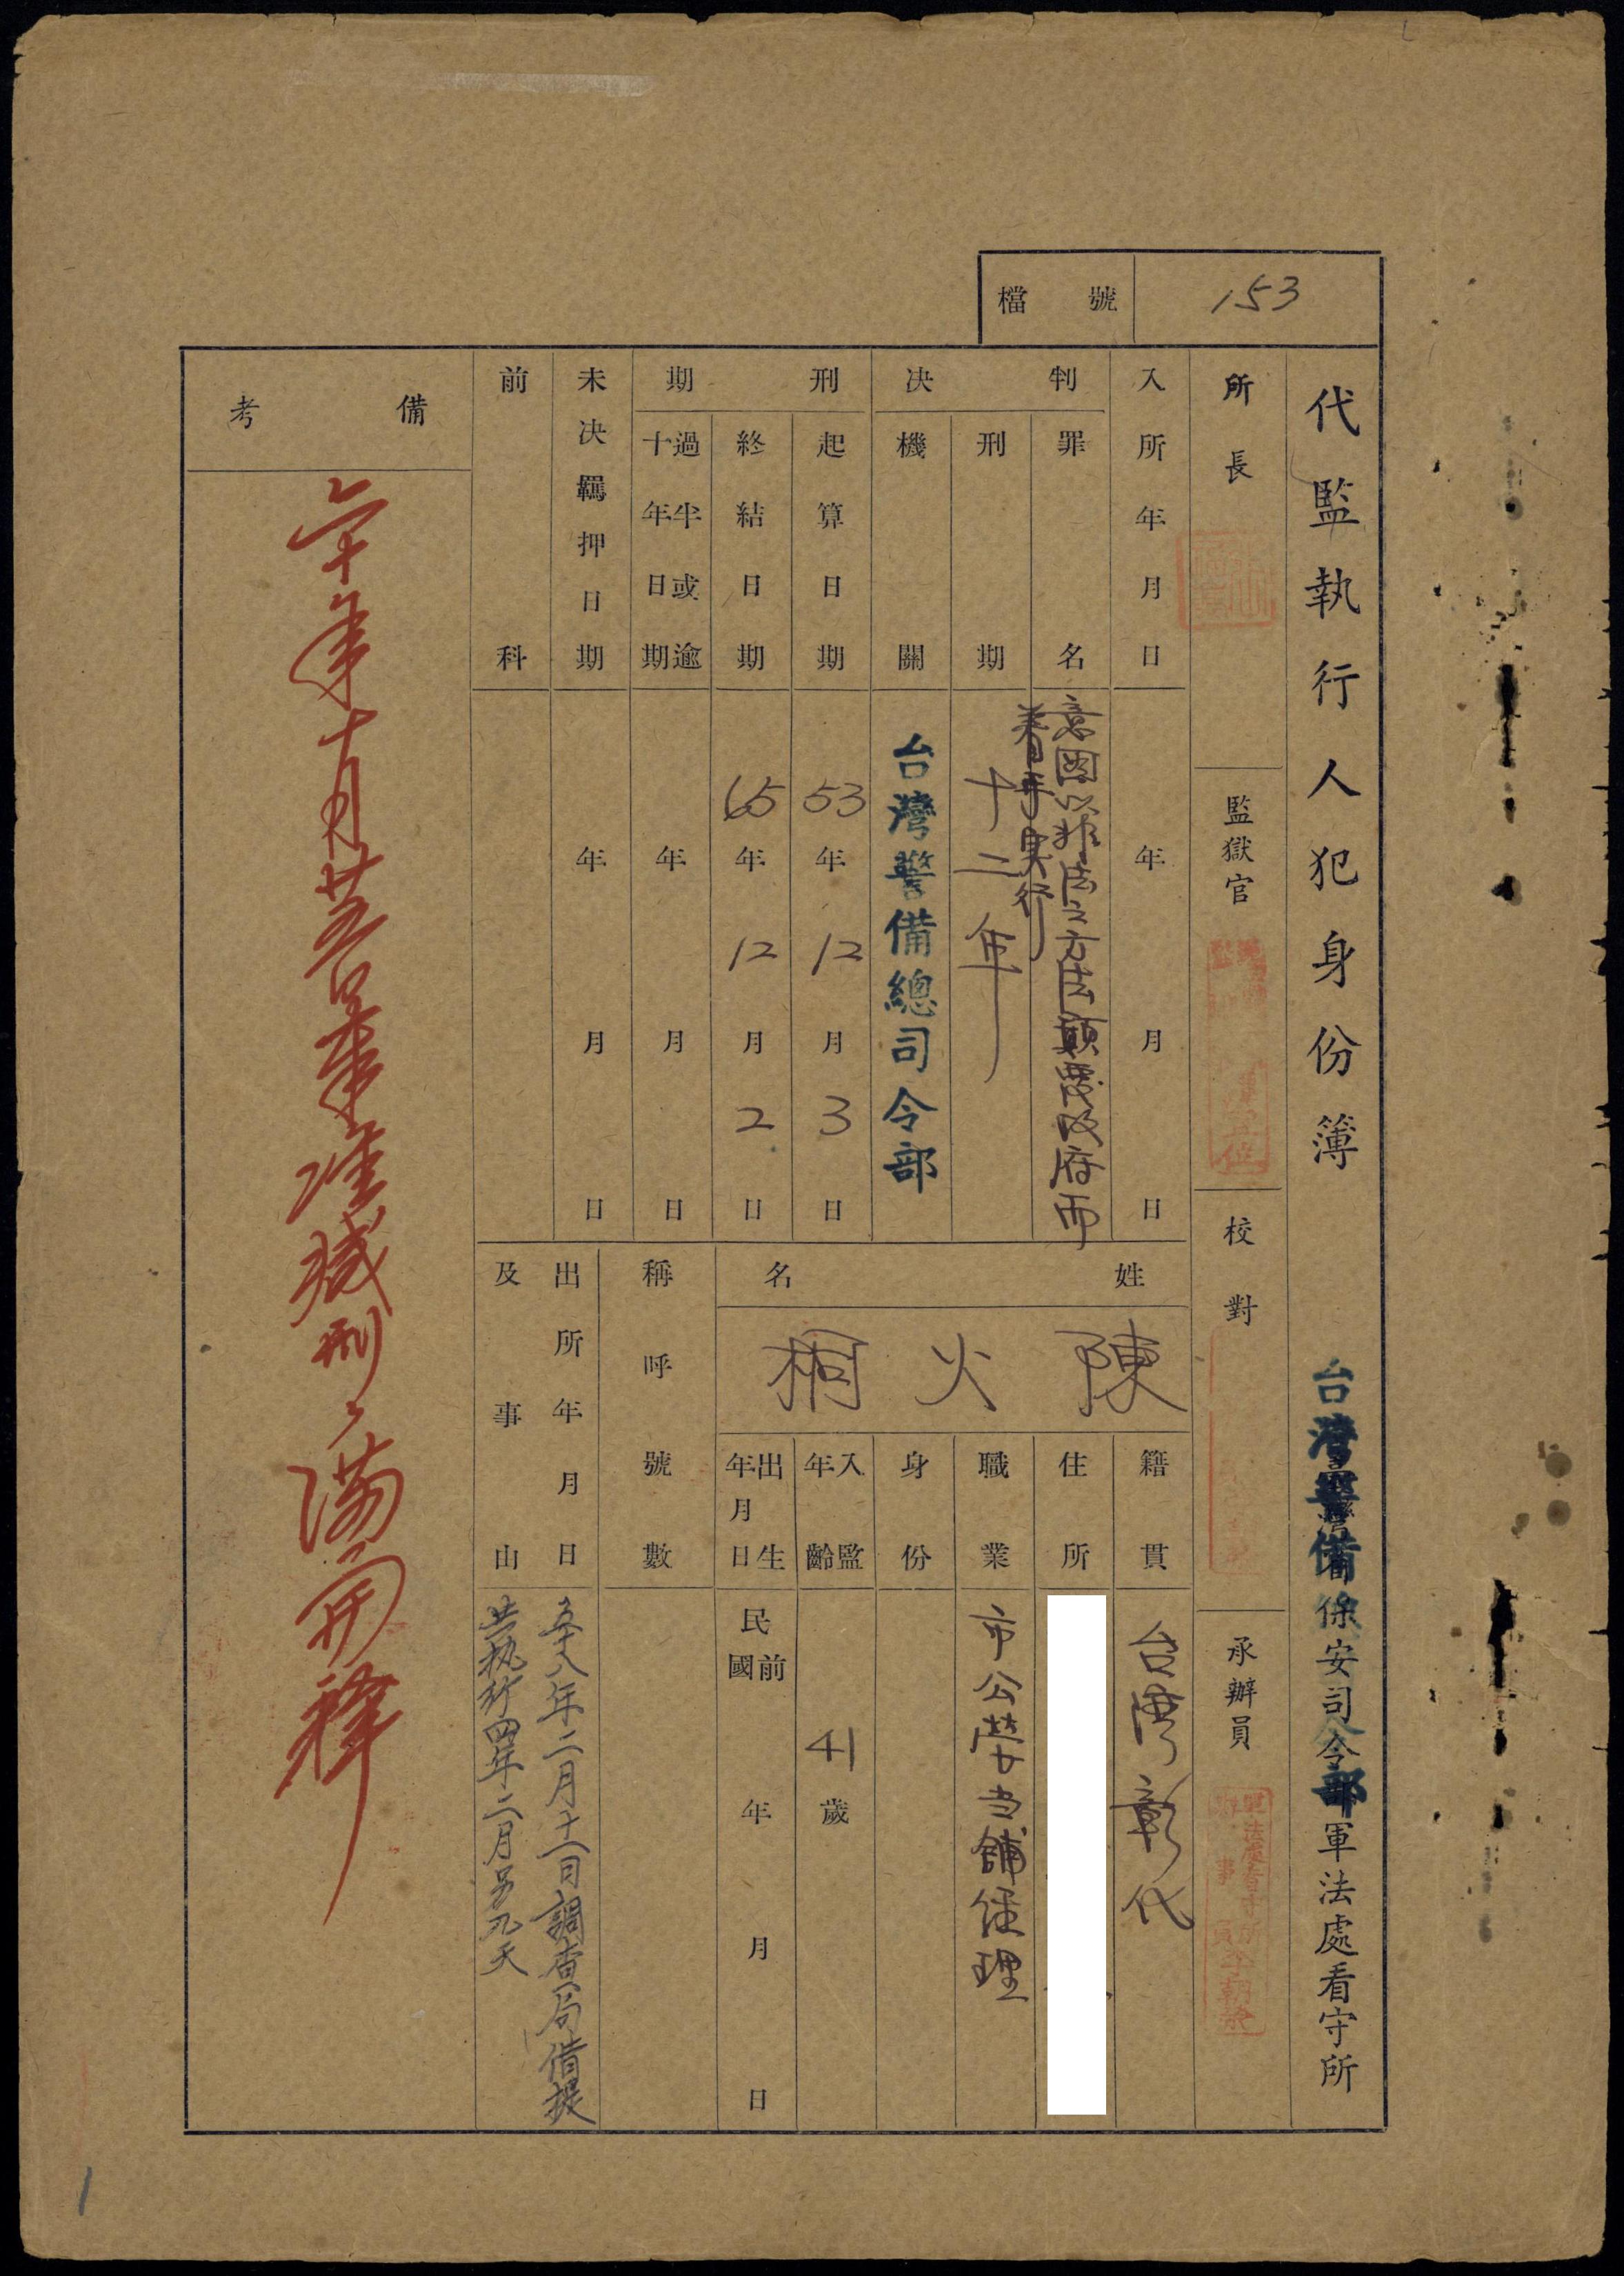 檔號
153
代監執行人犯身份簿
台灣警備總司令部軍法處看守所
保安司令部
所長
監獄官
校對
承辦員
入所年月日
年 月 日
判決
罪名
意圖以非法之方法顛覆政府而
着手実行
刑期
十二年
機關
台灣警備總司令部
刑期
起算日期
53年12月3日
終結日期
65年12月2日
過半或逾
十年日期
年 月 日
未決羈押日期
年 月 日
前科
姓名
陳火桐
籍貫
台灣彰化
住所
職業
市公營当舖経理
身份
入監
年齡
41歲
出生
年月日
民國前
年 月 日
稱呼號數
出所年月日
及事由
五十八年二月十一日調查局借提
共執行四年二月另九天
備考
年十月廿
減刑
滿開釋
1